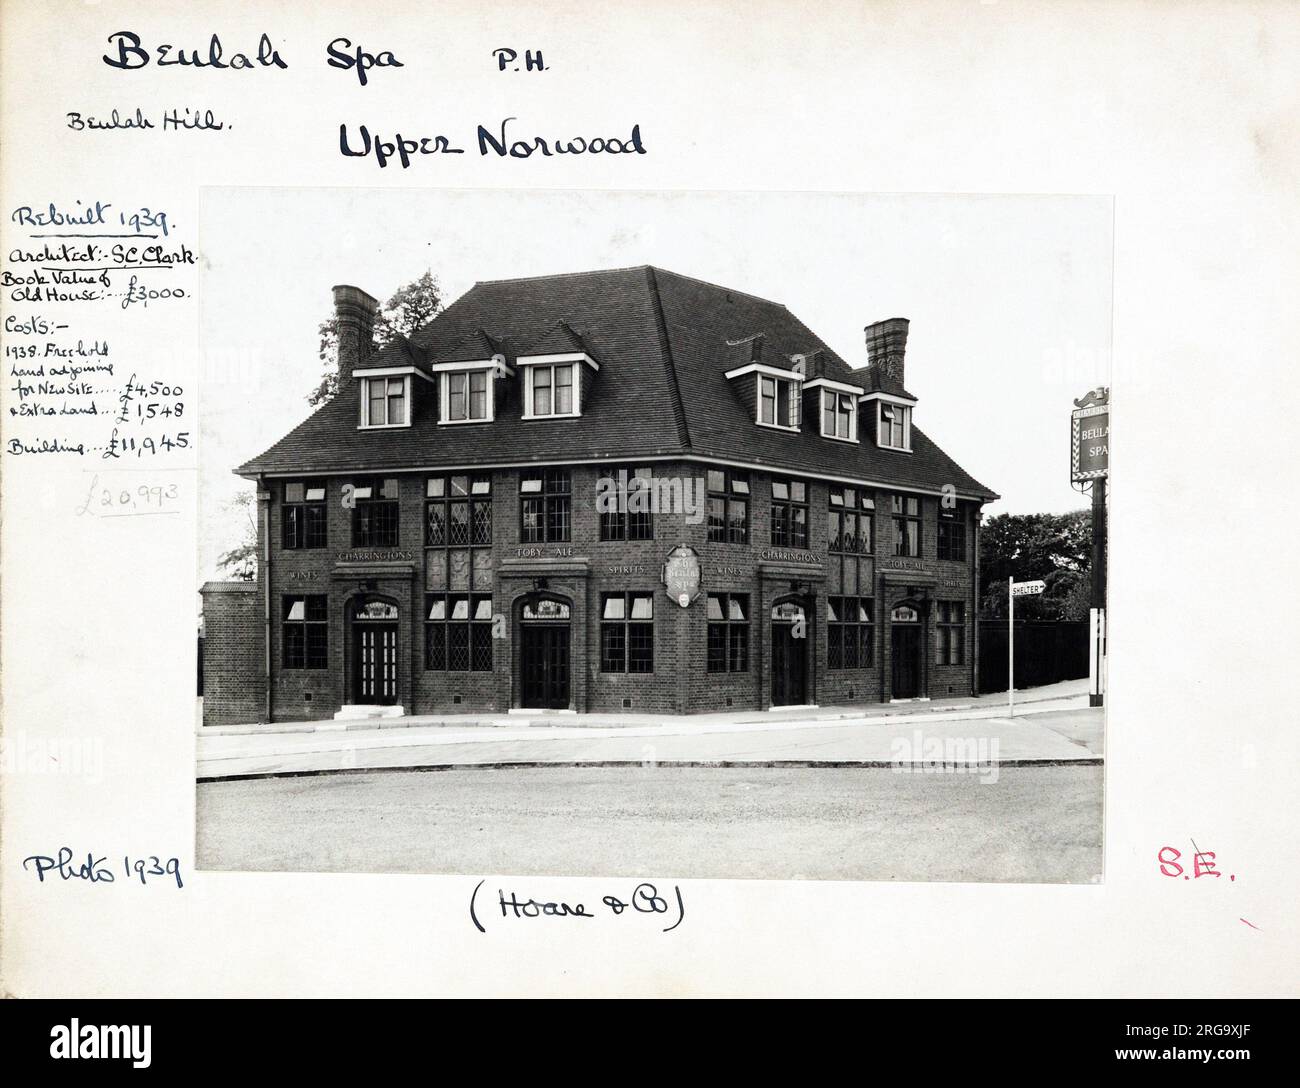 Beulah Spa P.H.
Beulah Hill.
Upper Norwood
Rebuilt 1939.
Architect:- S.C. Clark.
Book Value of
Old House:-...£3,000.
Costs:-
1938. Freehold
Land adjoining
for New Site.....£4,500
& Extra Land...£1,548
Building...£11,945.
£20,993
CHARRINGTON'S
TOBY ALE
CHARRINGTON'S
TOBY ALE
WINES
SPIRITS
WINES
SPIRITS
BEULAH
SPA
SHELTER
CHARRIN
BEULA
SPA
Photo 1939
(Hoare & Co)
S.E.
alamy
Image ID: 2RG9XJF
www.alamy.com